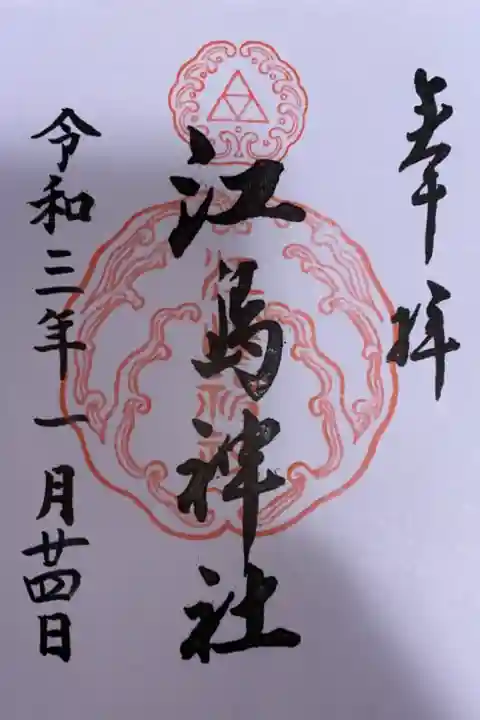 奉拝
江島神社
令和三年一月廿四日